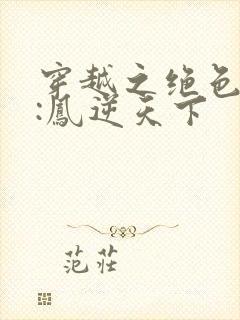 穿越之绝色
:凰逆天下
范莊